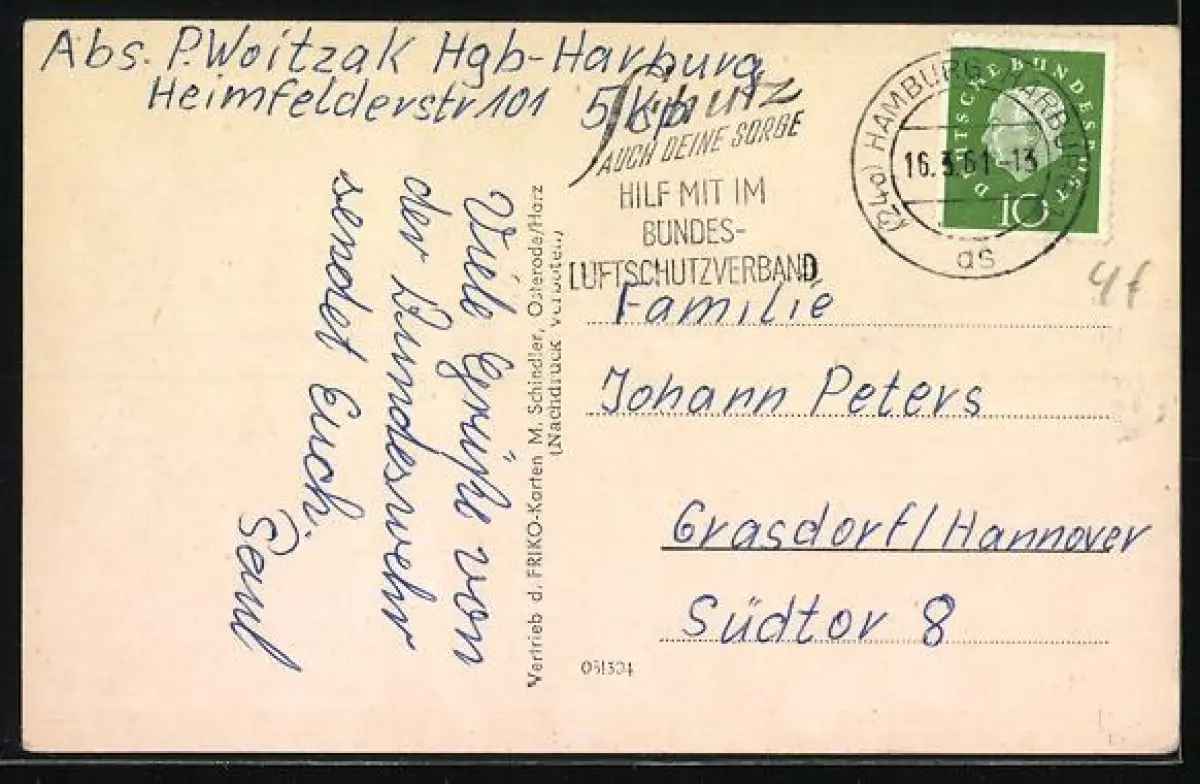 Abs. P. Woitzak Hgb-Harburg
Heimfelderstr 101 5/Kp
Schutz
AUCH DEINE SORGE
HILF MIT IM
BUNDES-
LUFTSCHUTZVERBAND
(24a) HAMBURG-HARBURG 1
16.3.61-13
as
DEUTSCHE BUNDESPOST
10
4f
Viele Grüße von
der Bundeswehr
sendet Euch
Paul
Vertrieb d. FRIKO-Karten M. Schindler, Osterode/Harz
(Nachdruck verboten)
Familie
Johann Peters
Grasdorf/Hannover
Südtor 8
051304